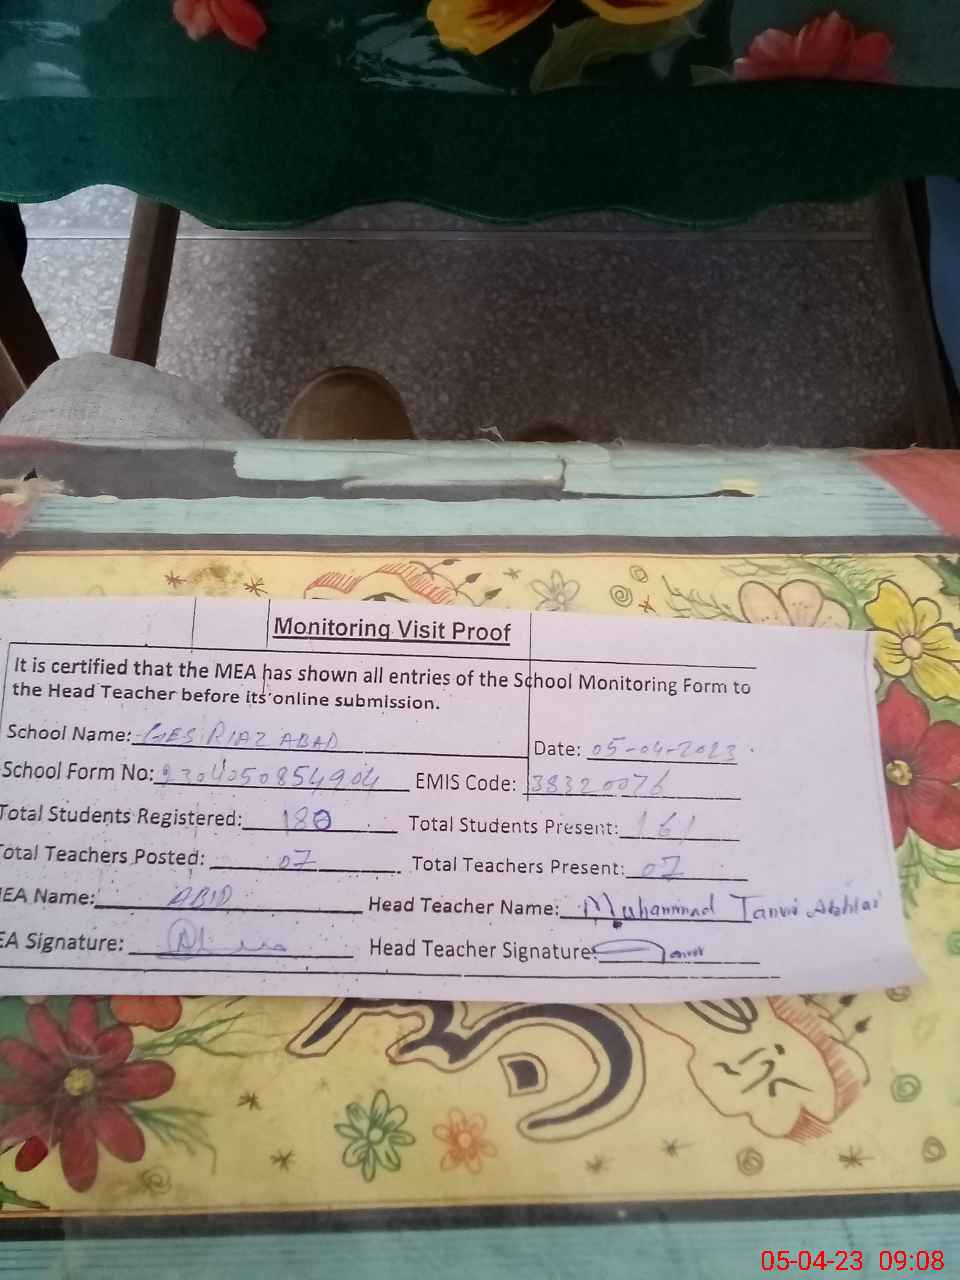 Monitoring Visit Proof
It is certified that the MEA has shown all entries of the School Monitoring Form to
the Head Teacher before its online submission.
School Name: GES RIAZ ABAD
Date: 05-04-2023
School Form No: 2304050854904 EMIS Code: 38320076
Total Students Registered: 180 Total Students Present: 161
Total Teachers Posted: 07 Total Teachers Present: 07
MEA Name: ABID Head Teacher Name: Muhammad Tanvir
EA Signature: Head Teacher Signature:
05-04-23 09:08